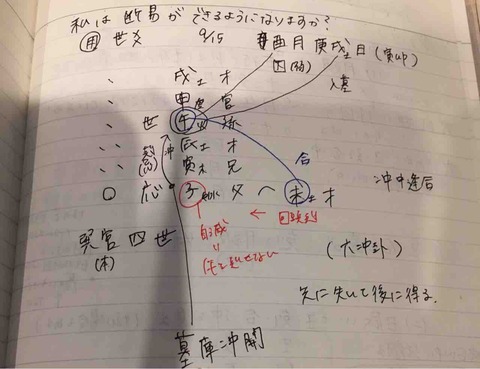 私は断易ができるようになりますか?
用 世爻 9/15 酉月 庚戌土日 (寅卯)
囚 入墓
戌土才
申金官
世 午火孫 合
戌土才 冲
寅木兄
応 子水父 未土才 冲中逢合
回頭剋
自滅
巽宮四世
(木)
(六冲卦)
先に失いて後に得る.
墓庫冲開